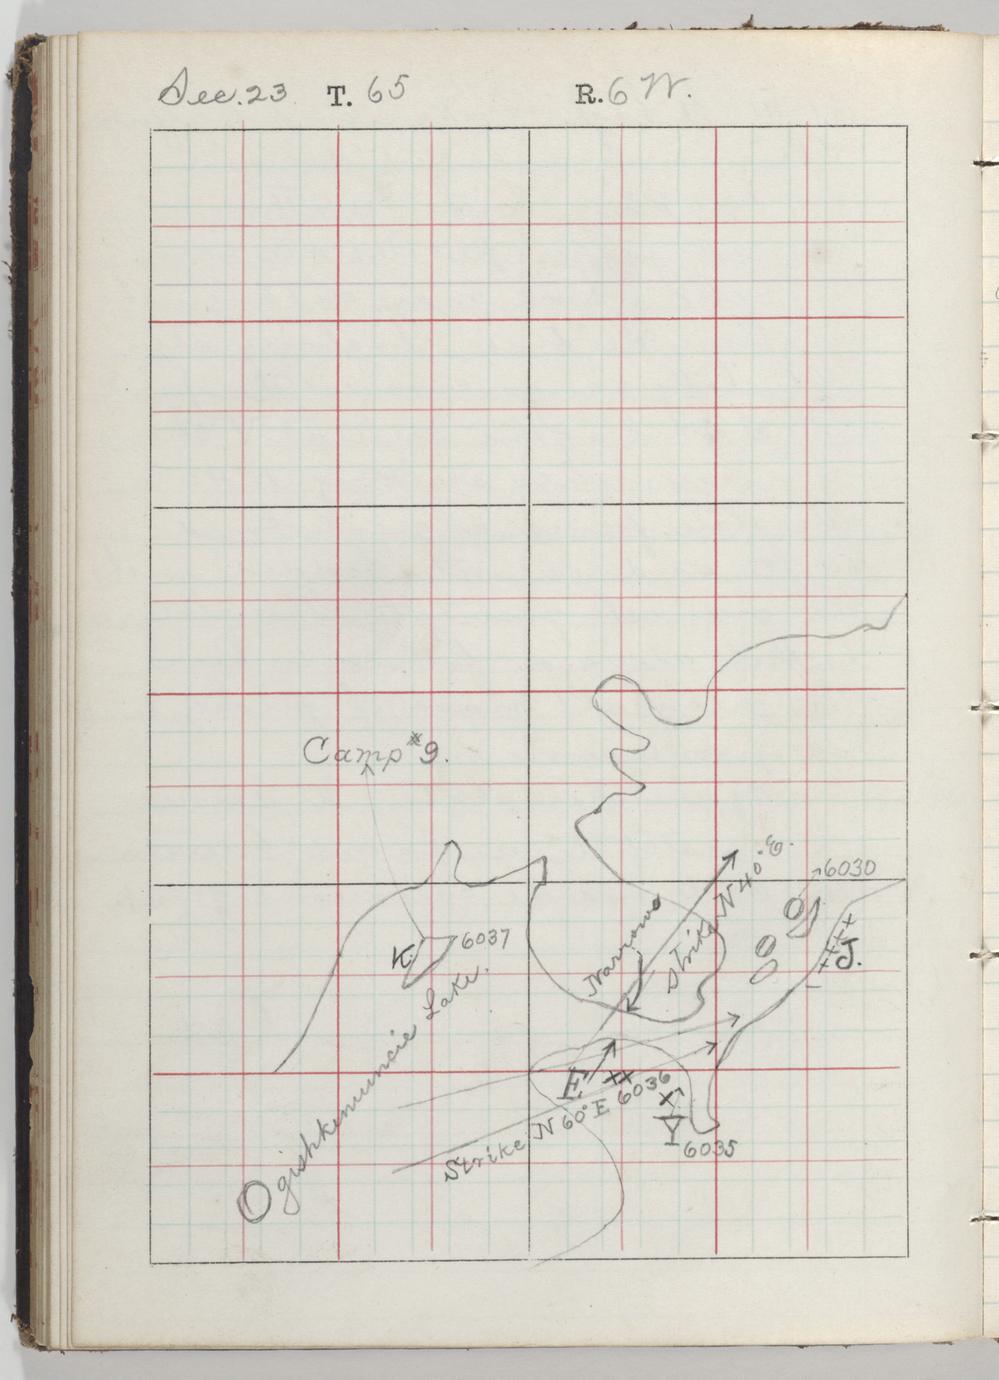 Sec. 23 T. 65 R. 6 W.
Camp #9.
6030
Strike N 40° E.
Narrows
J.
K.
6037
Ogishkemuncie Lake.
E.
6036
Strike N 60° E
Y
6035